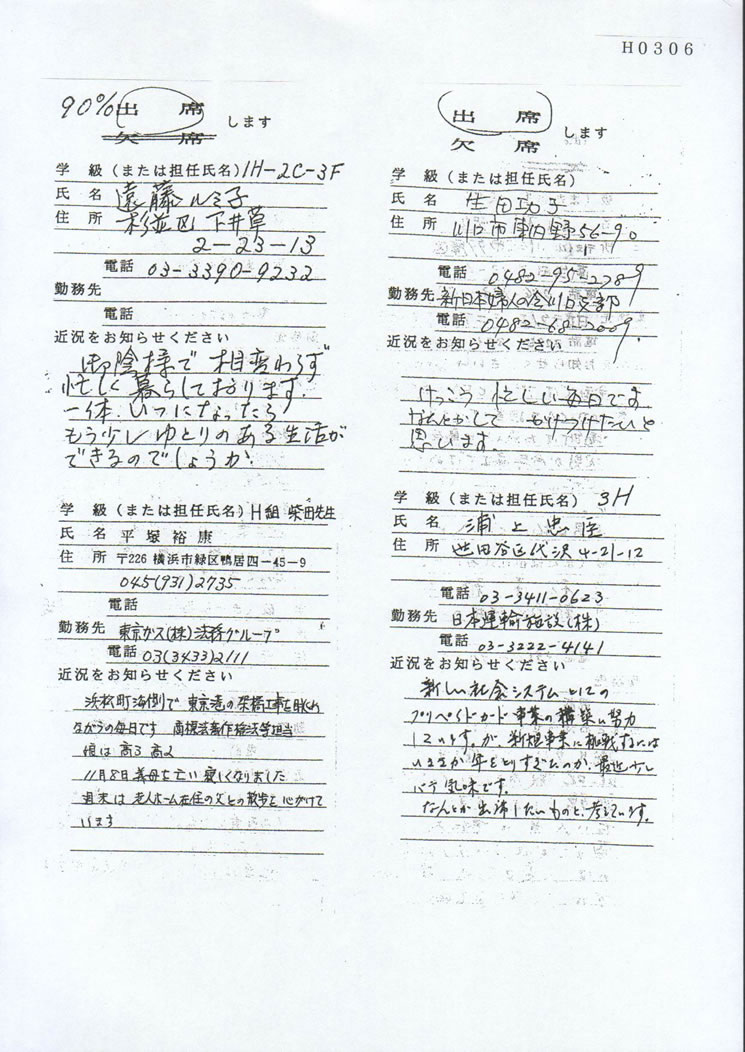 H0306
90%出席 します
欠席
学級(または担任氏名) 1H-2C-3F
氏名 遠藤ルミ子
住所 杉並区下井草
2-23-13
電話 03-3390-9232
勤務先
電話
近況をお知らせください
御陰様で相変わらず
忙しく暮らしております.
一体.いつになったら
もう少しゆとりのある生活が
できるのでしょうか.
出席 します
欠席
学級(または担任氏名)
氏名 生田功子
住所 川口市東内野56-90
電話 0482-95-2789
勤務先 新日本婦人の会川口支部
電話 0482-68-2009
近況をお知らせください
けっこう忙しい毎日です
なんとかして かけつけたいと
思います
学級(または担任氏名) H組 柴田先生
氏名 平塚裕康
住所 〒226 横浜市緑区鴨居四-45-9
045(931)2735
電話
勤務先 東京ガス(株)法務グループ
電話 03(3433)2111
近況をお知らせください
浜松町海側で 東京港の架橋工事を眺め
ながらの毎日です 商標法著作権法等担当
娘は高3 高2
11月8日義母を亡い寂しくなりました
週末は老人ホーム在住の父との散歩を心がけて
います
学級(または担任氏名) 3H
氏名 浦上忠
住所 世田谷区代沢4-21-12
電話 03-3411-0623
勤務先 日本運輸施設(株)
電話 03-3222-4141
近況をお知らせください
新しい社会システムとしての
プリペイドカード事業の構築に努力
しています。が、新規事業に挑戦するには
いささか年をとりすぎたのか、最近少し
バテ気味です。
なんとか出席したいものと、考えています。